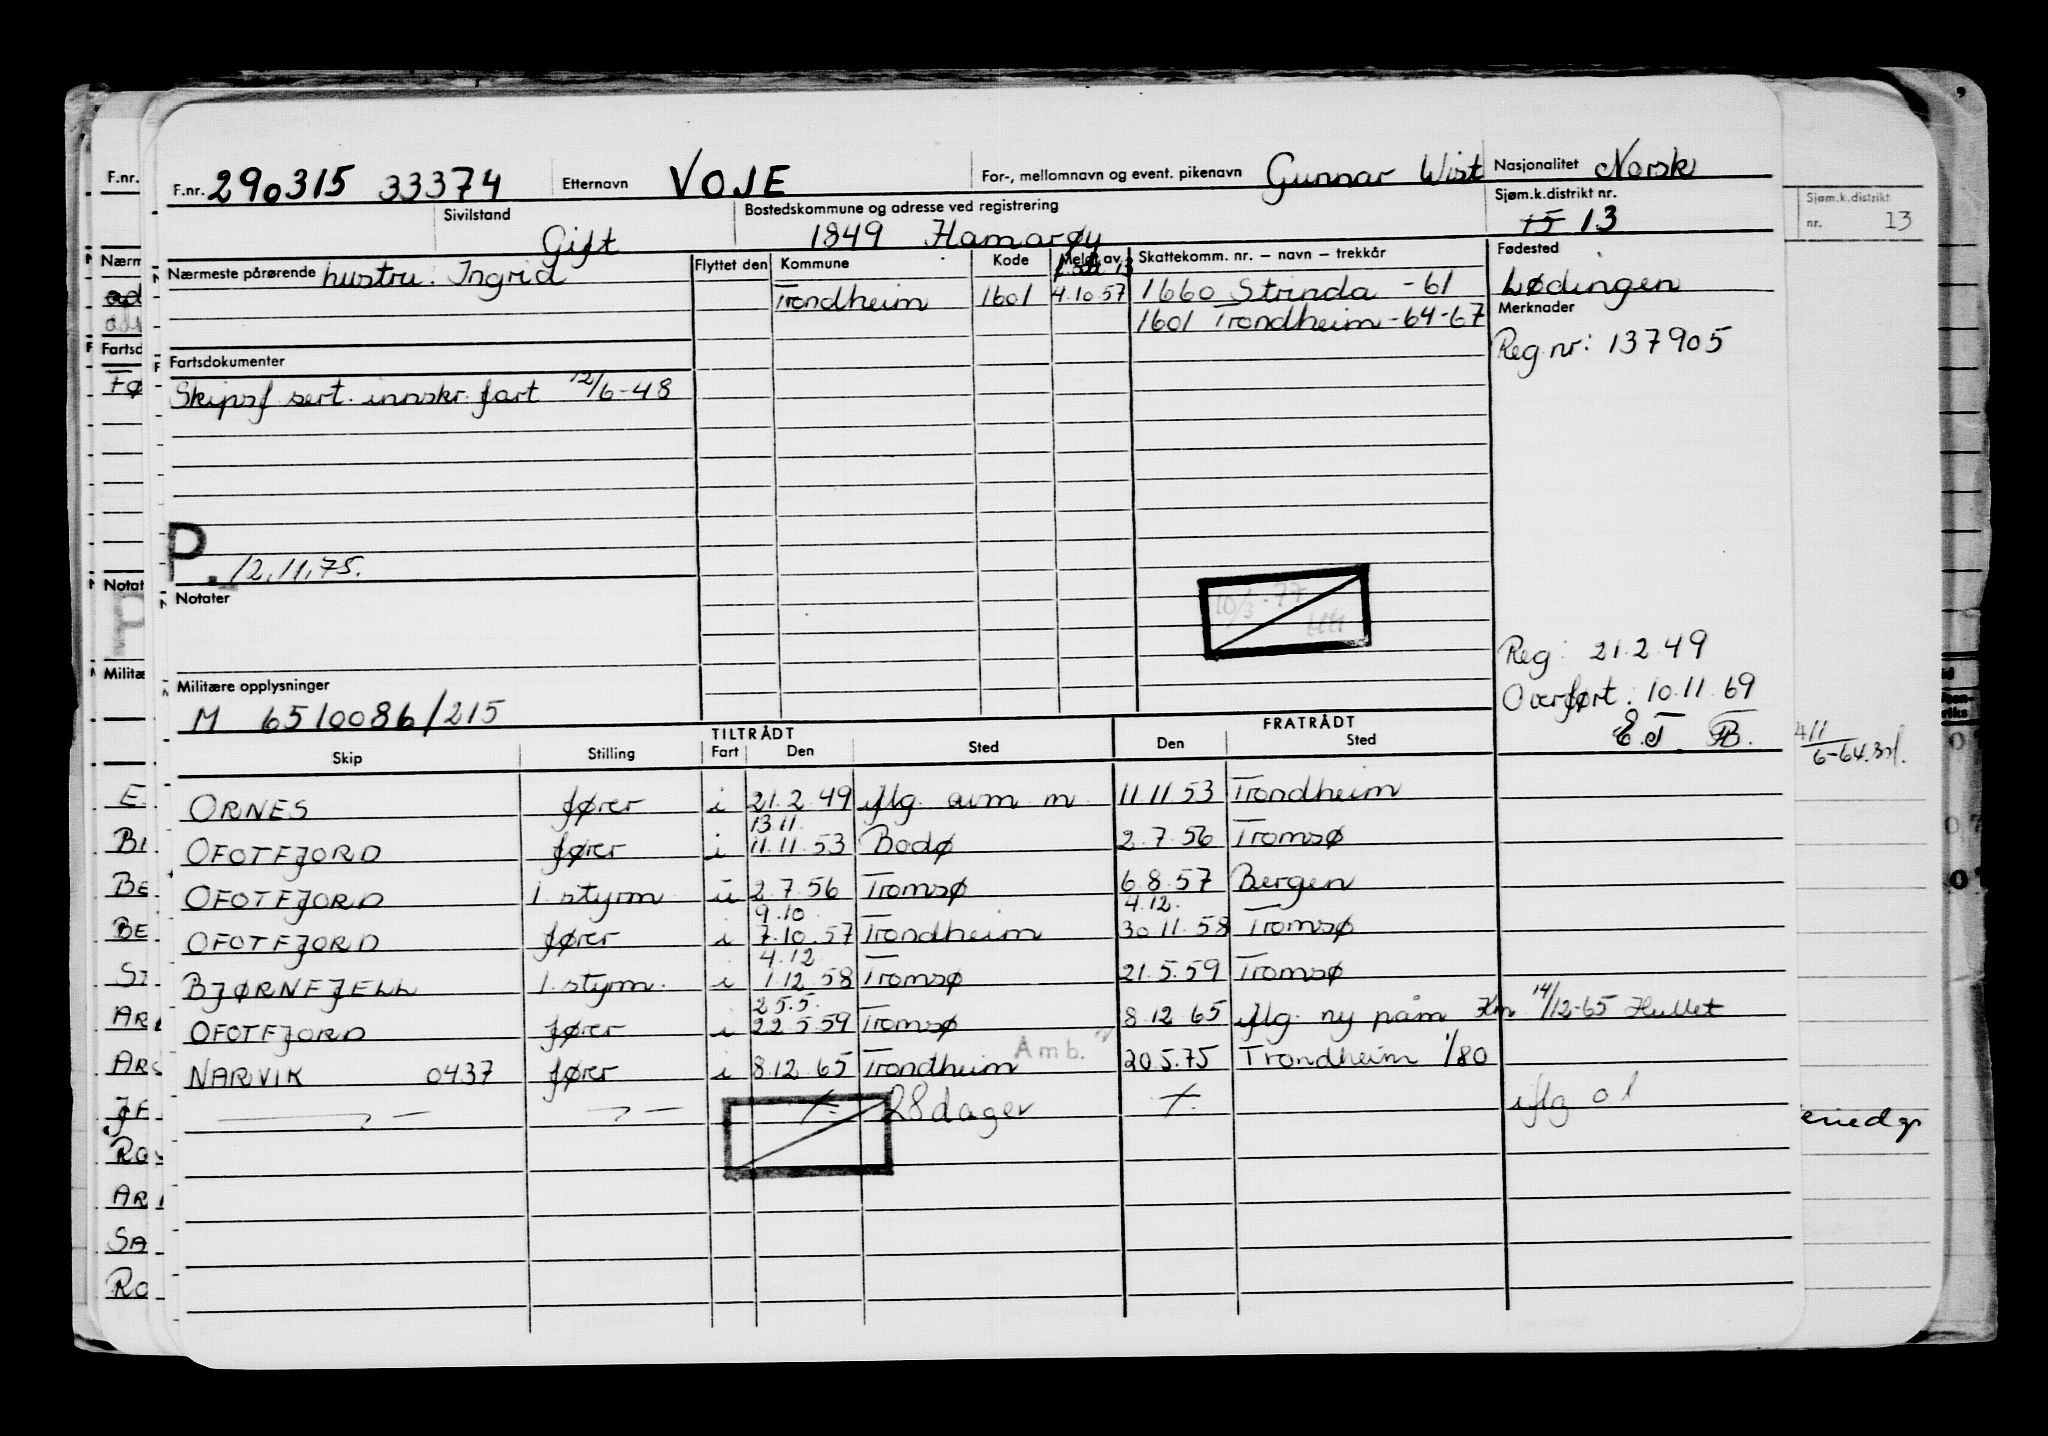 F.nr. 290315 33374 Etternavn VOJE For-, mellomnavn og event. pikenavn Gunnar Wist Nasjonalitet Norsk
Sivilstand Gift Bostedskommune og adresse ved registrering 1849 Hamarøy Sjøm.k.distrikt nr. 15 13
Nærmeste pårørende hustru: Ingrid Flyttet den Kommune Kode Meldt av Skattekomm. nr. – navn – trekkår Fødested
Trondheim 1601 4.10.57 1660 Strinda -61 Lødingen
1601 Trondheim -64-67 Merknader
Reg.nr: 137905
Fartsdokumenter
Skipsf. sert. innskr. fart 12/6-48
P. 12.11.75.
Notater
10/3.77
Reg: 21.2.49
Militære opplysninger Overført: 10.11.69
M 6510086/215 E.J.
TILTRÅDT FRATRÅDT
Skip Stilling Fart Den Sted Den Sted
ORNES fører i 21.2.49 iflg. avm. m. 11.11.53 Trondheim
13.11.
OFOTFJORD fører i 11.11.53 Bodø 2.7.56 Tromsø
OFOTFJORD 1. styrm. u 2.7.56 Tromsø 6.8.57 Bergen
9.10. 4.12.
OFOTFJORD fører i 7.10.57 Trondheim 30.11.58 Tromsø
4.12.
BJØRNFJELL 1. styrm. i 1.12.58 Tromsø 21.5.59 Tromsø
25.5.
OFOTFJORD fører i 22.5.59 Tromsø 8.12.65 iflg. ny påm 14/12-65 Hullet
Amb.
NARVIK 0437 fører i 8.12.65 Trondheim 20.5.75 Trondheim 1/80
28 dager iflg
Sjøm.k.distrikt
nr. 13
F.nr.